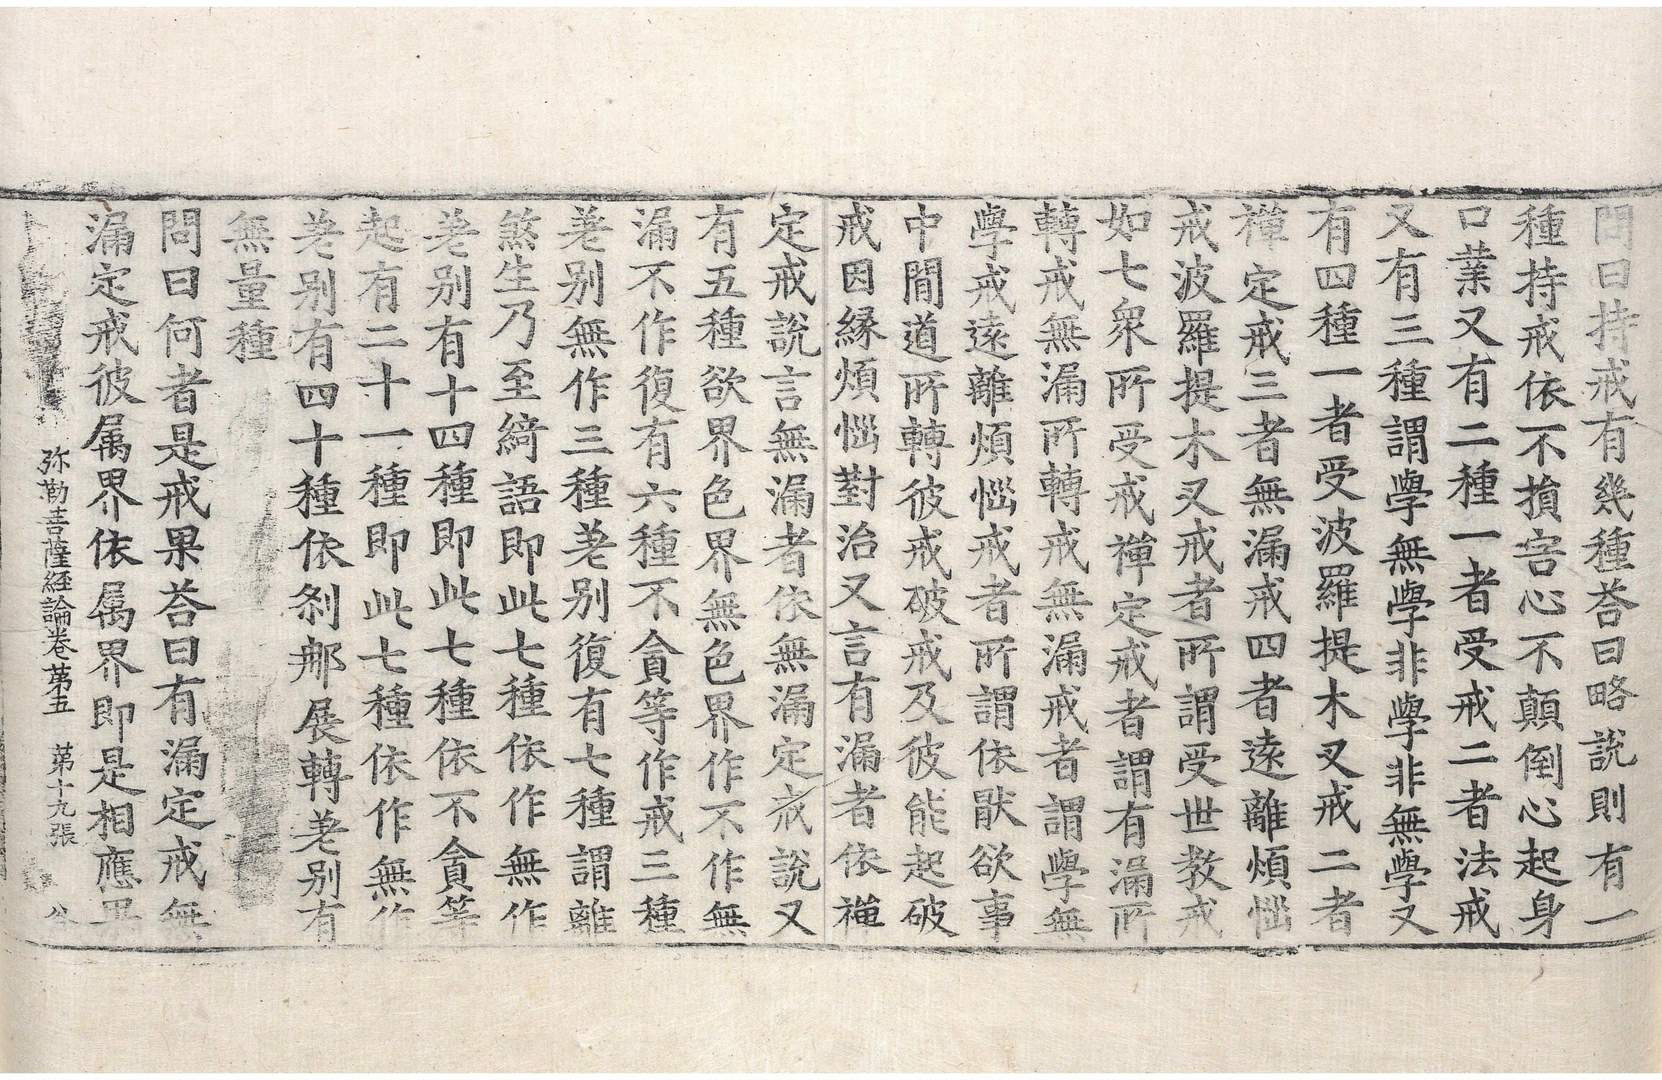 問曰持戒有幾種荅曰略說則有一
種持戒依不損害心不顛倒心起身
口業又有二種一者受戒二者法戒
又有三種謂學無學非學非無學又
有四種一者受波羅提木叉戒二者
禪定戒三者無漏戒四者遠離煩惱
戒波羅提木叉戒者所謂受世教戒
如七衆所受戒禪定戒者謂有漏所
轉戒無漏所轉戒無漏戒者謂學無
學戒遠離煩惱戒者所謂依猒欲事
中間道所轉彼戒破戒及彼能起破
戒因縁煩惱對治又言有漏者依禪
定戒說言無漏者依無漏定戒說又
有五種欲界色界無色界作不作無
漏不作復有六種不貪等作戒三種
差别無作三種差别復有七種謂離
煞生乃至綺語即此七種依作無作
差别有十四種即此七種依不貪等
起有二十一種即此七種依作無作
差别有四十種依刹那展轉差别有
無量種
問曰何者是戒果荅曰有漏定戒無
漏定戒彼属界依属界即是相應果
弥勒菩薩經論卷苐五 苐十九張